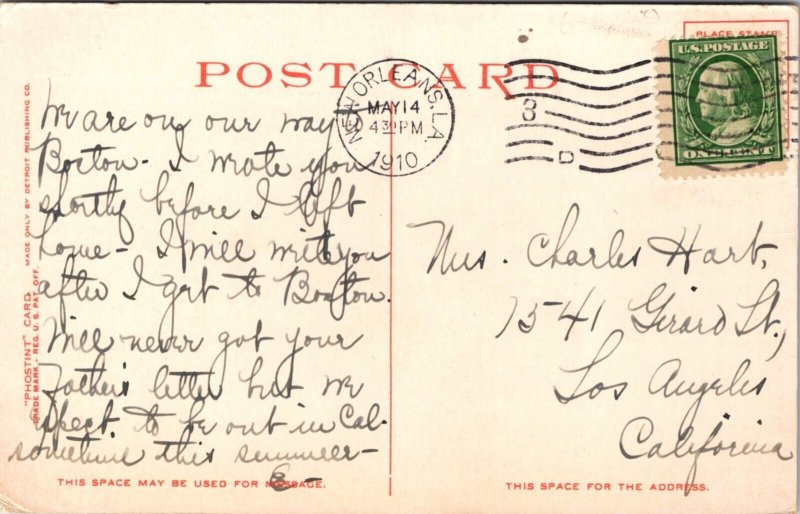 POST CARD
PLACE STAMP
U.S. POSTAGE
ONE CENT
NEW ORLEANS, LA.
MAY 14
4 30 PM
1910
3
D
"PHOSTINT" CARD MADE ONLY BY DETROIT PUBLISHING CO.
TRADE MARK - REG. U.S. PAT. OFF.
We are on our way
Boston - I wrote you
shortly before I left
home - I will write you
after I get to Boston.
Will never got your
Father's letter but we
expect to be out in Cal.
sometime this summer -
THIS SPACE MAY BE USED FOR MESSAGE.
Mrs. Charles Hart,
1541 Girard St.,
Los Angeles
California
THIS SPACE FOR THE ADDRESS.